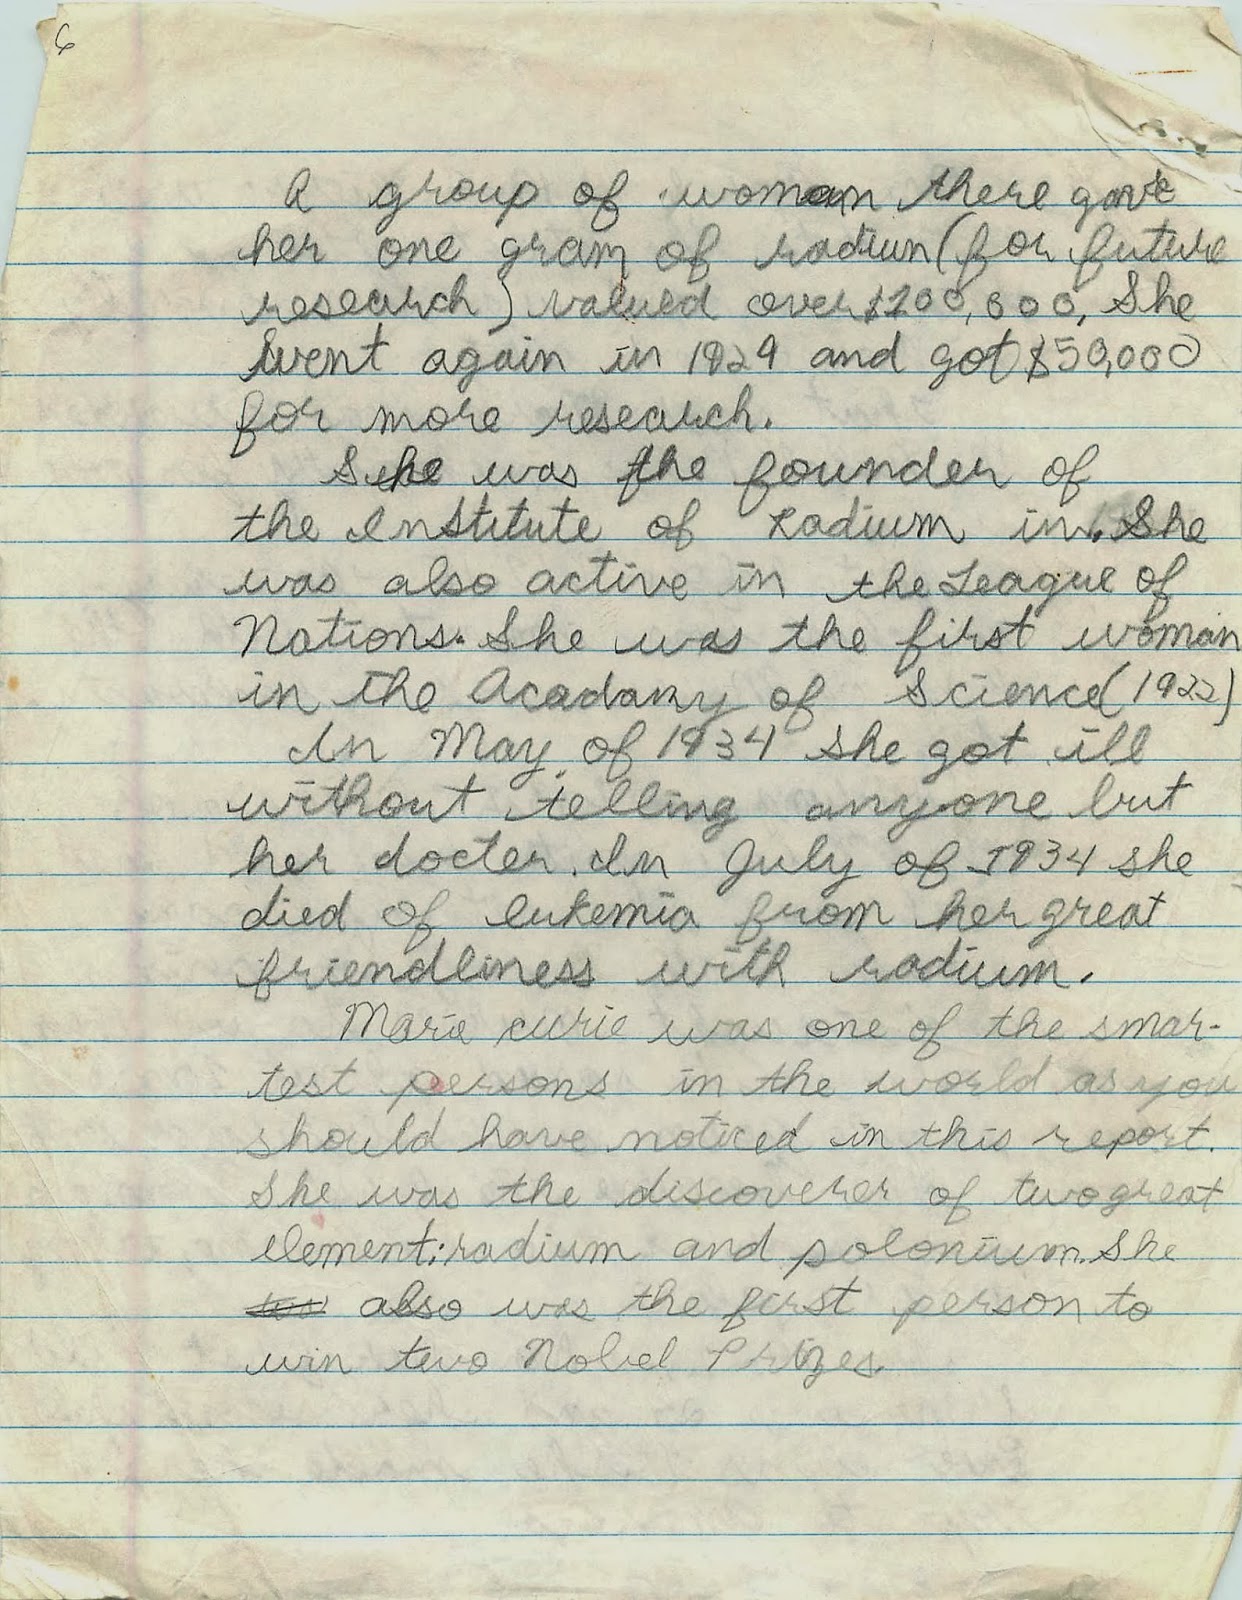 6
A group of woman there gave
her one gram of radiun (for future
research) valued over $200,000, She
went again in 1929 and got $50,000
for more research.
She was the founder of
the Institute of Radium in. She
was also active in the League of
Nations. She was the first woman
in the Acadamy of Science (1922)
In May of 1934 she got ill
without telling anyone but
her docter. In July of 1934 she
died of lukemia from her great
friendliness with radium.
Marie curie was one of the smar-
test persons in the world as you
should have noticed in this report.
She was the discoverer of two great
element: radium and polonium. She
also was the first person to
win two Nobel Prizes.